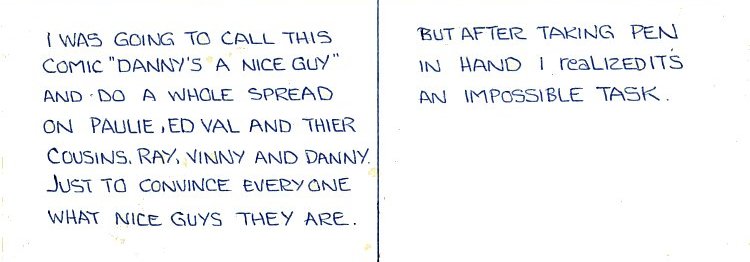 I WAS GOING TO CALL THIS
COMIC "DANNY'S A NICE GUY"
AND DO A WHOLE SPREAD
ON PAULIE, ED VAL AND THIER
COUSINS, RAY, VINNY AND DANNY.
JUST TO CONVINCE EVERYONE
WHAT NICE GUYS THEY ARE.
BUT AFTER TAKING PEN
IN HAND I reaLIZED IT'S
AN IMPOSSIBLE TASK.